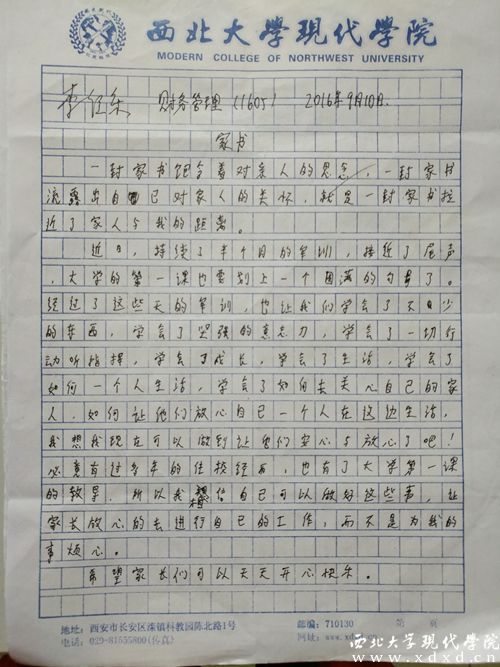 西北大学现代学院
MODERN COLLEGE OF NORTHWEST UNIVERSITY
李衍乐 财务管理(1605) 2016年9月10日.
家书
一封家书饱含着对亲人的思念，一封家书
流露出自己对家人的关怀，就是一封家书拉
近了家人与我的距离。
近日，持续了半个月的军训，接近了尾声
，大学的第一课也要划上一个圆满的句号了。
经过了这些天的军训，也让我们学会了不少
的东西，学会了坚强的意志力，学会了一切行
动听指挥，学会了成长，学会了生活，学会了
如何一个人生活，学会了如何去关心自己的家
人，如何让他们放心自己一个人在这边生活，
我想我现在可以做到让他们安心与放心了吧！
必竟有过多年的住校经历，也有了大学第一课
的教导，所以我相信自己可以做好这些事，让
家长放心的去进行自己的工作，而不是为我的
事烦心。
希望家长们可以天天开心快乐。
地址：西安市长安区滦镇科教园陈北路1号 邮编：710130 第 页
电话：029-81555800(传真) 网址：www.xdxd.cn
西北大学现代学院
www.xdxd.cn